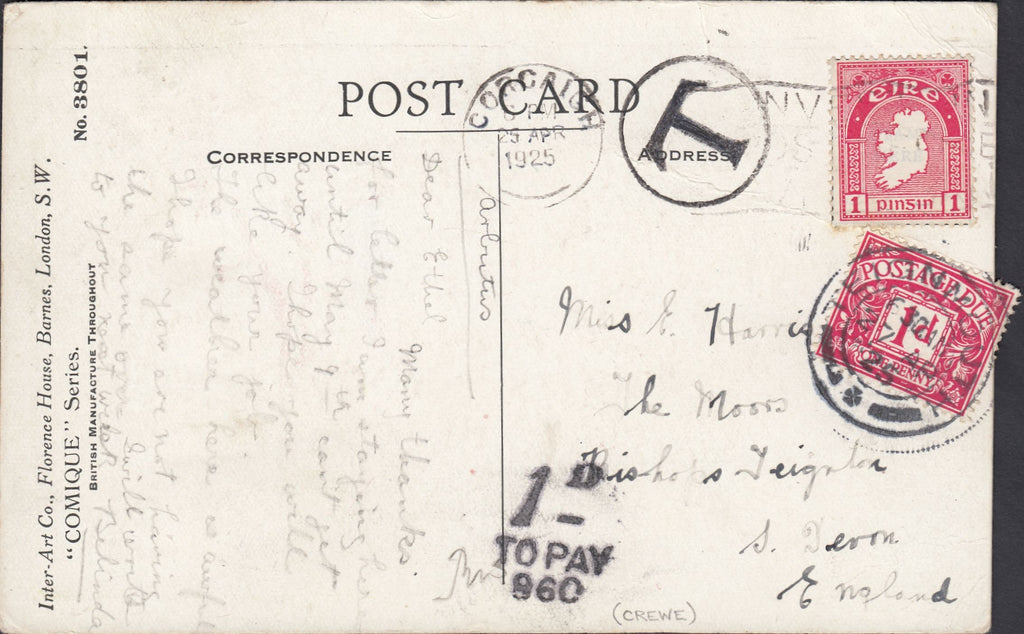 POST CARD
CORRESPONDENCE
ADDRESS
No. 3801.
Inter-Art Co., Florence House, Barnes, London, S.W.
"COMIQUE" Series.
BRITISH MANUFACTURE THROUGHOUT
CORCAIGH
PM
25 APR
1925
T
eire
1 pinsin 1
POSTAGE DUE
1d
ONE PENNY
Arbutus
Dear Ethel
Many thanks
for letter I am staying here
until May 9th cant get
away. I hope you will
like your job
The weather here is awful
I hope you are not having
the same. I will write
to you next week Belinda
Miss E. Harris
The Moors
Bishops Teignton
S. Devon
England
1D
TO PAY
960
(CREWE)